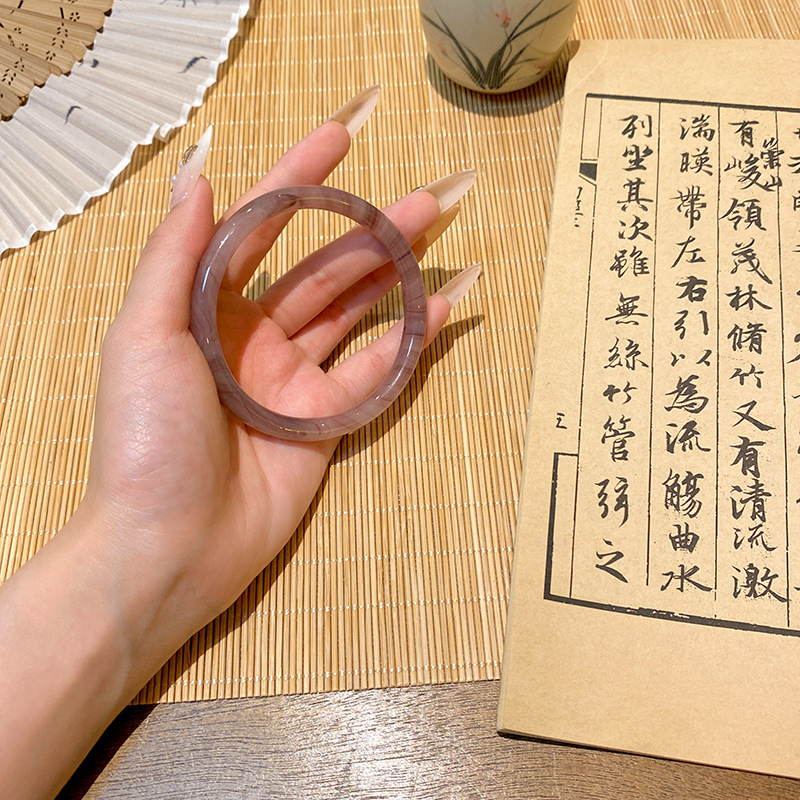 有崇山峻領茂林脩竹又有清流激
湍暎帶左右引以為流觴曲水
列坐其次雖無絲竹管弦之
三